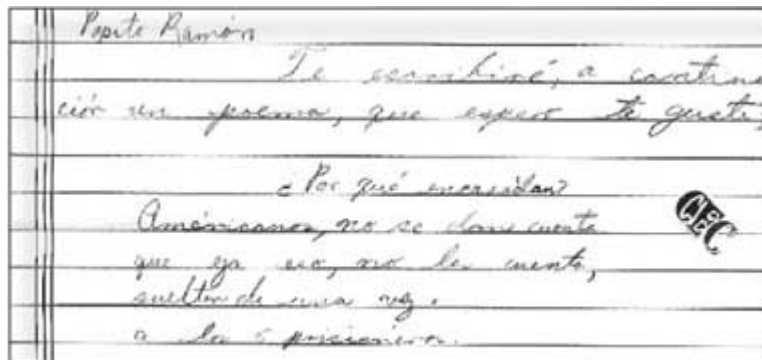 Papito Ramón
Te escribiré, a continua
ción un poema, que espero te guste,
¿Por qué
Américanos, no se dan cuenta
que ya eso, no les cuenta,
suelten de una vez.
a los 5 prisioneros.